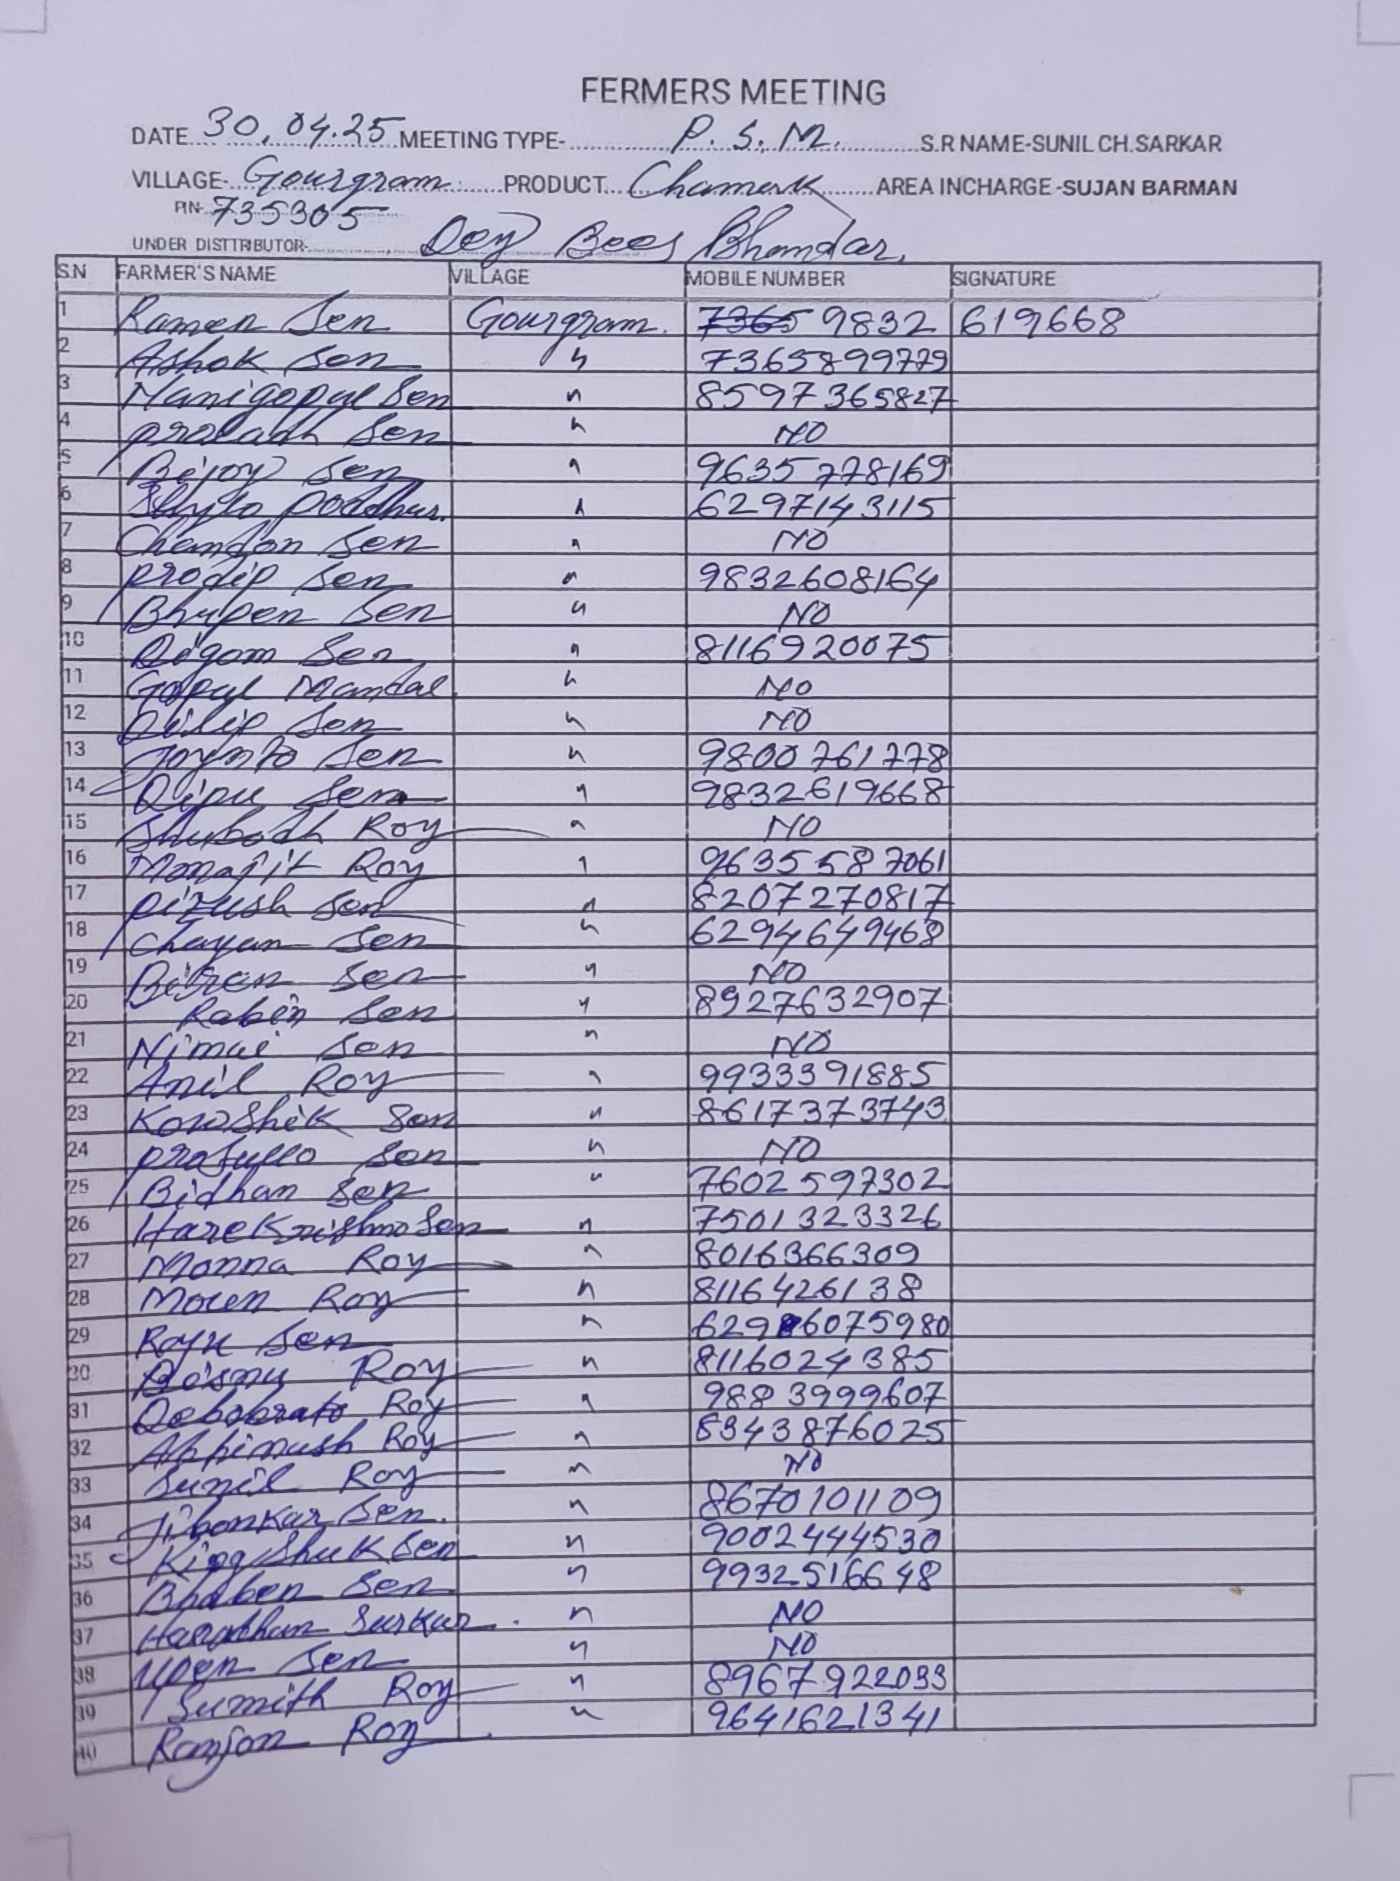 FERMERS MEETING
DATE 30.04.25 MEETING TYPE- P.S.M. S.R NAME-SUNIL CH.SARKAR
VILLAGE- Gourgram PRODUCT Chamerk AREA INCHARGE -SUJAN BARMAN
PIN- 735305
UNDER DISTTRIBUTOR- Dey Bees Bhandar
S.N FARMER'S NAME VILLAGE MOBILE NUMBER SIGNATURE
1 Ramen Sen Gourgram. 7365 9832 619668
2 Ashok Sen " 7365899779
3 Nanigopal Sen " 8597365827
4 proladh Sen " NO
5 Bijoy Sen " 9635778169
6 Poddhar. " 6297143115
7 Chandon Sen " NO
8 prodip Sen " 9832608164
9 Bhupen Sen " NO
10 Digom Sen " 8116920075
11 Gopal Mandal " No
12 Dilip Sen " NO
13 Joynto Sen " 9800761778
14 Dipu Sen " 9832619668
15 Shubodh Roy " NO
16 Monajit Roy " 9635587061
17 pizush Sen " 8207270817
18 Chayan Sen " 6294649468
19 Biren Sen " NO
20 Rabin Sen " 8927632907
21 Nimai Sen " NO
22 Anil Roy " 9933391885
23 Kowshik Sen " 8617373743
24 profullo Sen " NO
25 Bidhan Sen " 7602597302
26 Hare Krishno Sen " 7501323326
27 Monna Roy " 8016366309
28 Moren Roy " 8116426138
29 Raju Sen " 6296075980
30 Bisnu Roy " 8116024385
31 Debobrato Roy " 9883999607
32 Abhinash Roy " 8343876025
33 Sunil Roy " NO
34 Jibonkar Sen. " 8670101109
35 Kingshuk Sen " 9002444530
36 Bhaben Sen " 9932516648
37 Haradhan Sarkar. " NO
38 Upen Sen " NO
39 Sumith Roy " 8967922033
40 Ranjon Roy " 9641621341